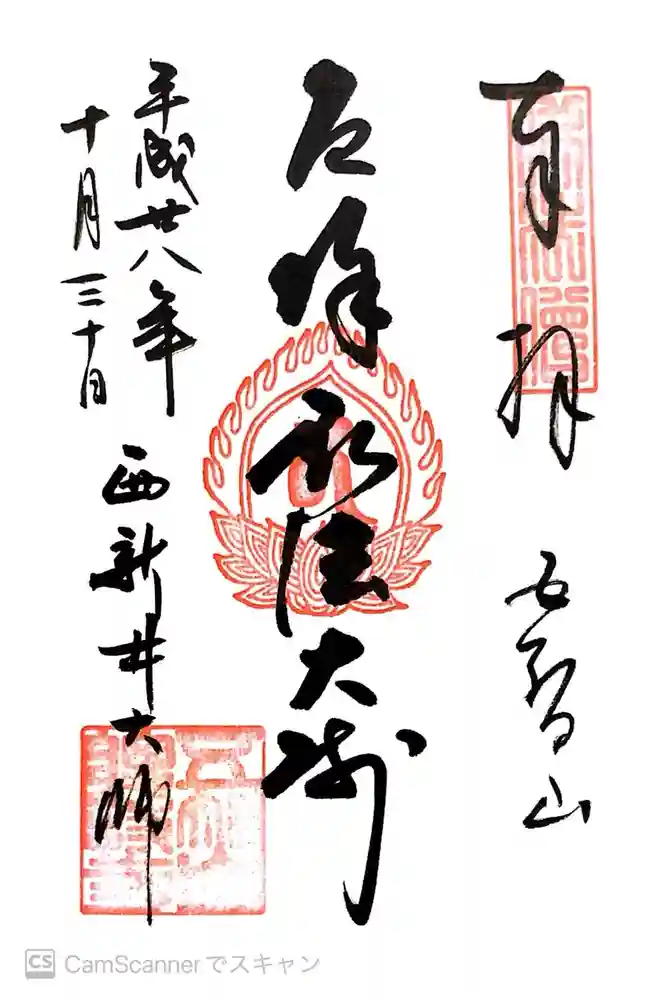 奉拝
五智山
厄除弘法大師
平成廿八年
十月三十日
西新井大師
CS CamScannerでスキャン